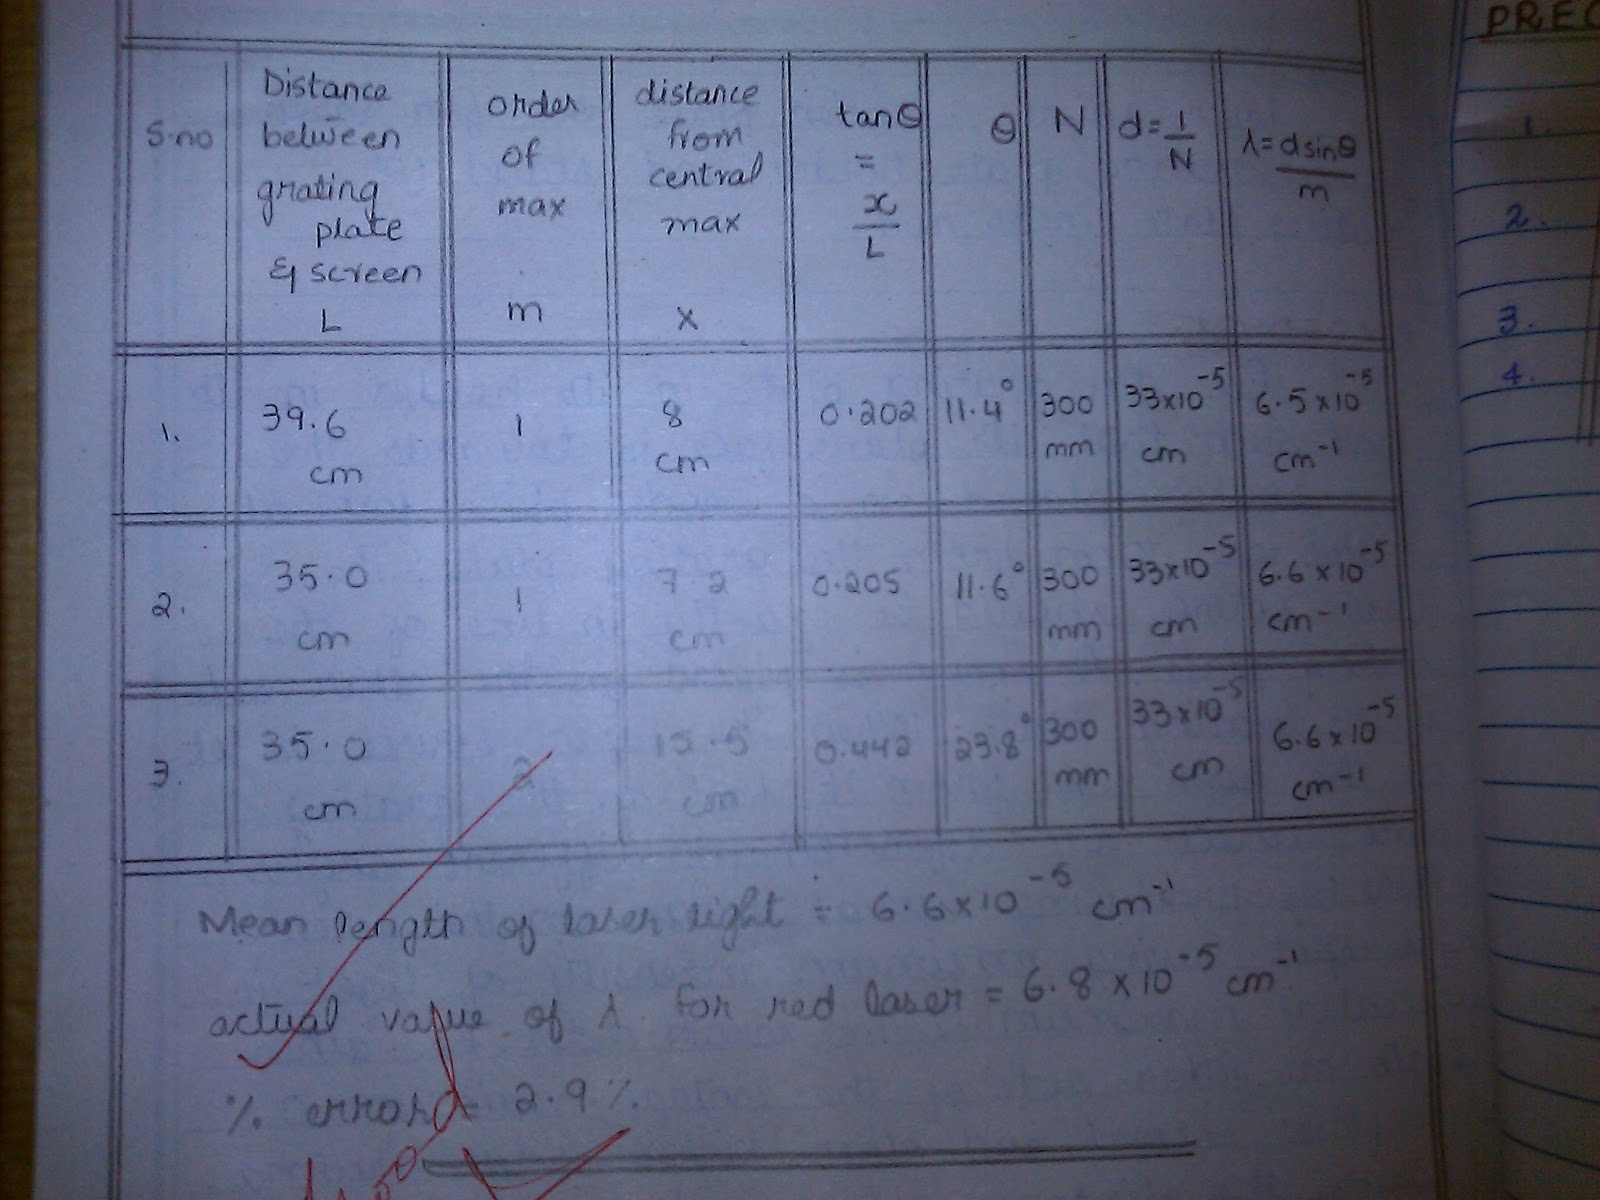 S.no
Distance
between
grating
plate
& screen
L
order
of
max
m
distance
from
central
max
x
tanθ
=
x
L
θ
N
d=1
N
λ=dsinθ
m
1.
39.6
cm
1
8
cm
0.202
11.4°
300
mm
33x10⁻⁵
cm
6.5x10⁻⁵
cm⁻¹
2.
35.0
cm
1
7.2
cm
0.205
11.6°
300
mm
33x10⁻⁵
cm
6.6x10⁻⁵
cm⁻¹
3.
35.0
cm
2
15.5
cm
0.442
23.8°
300
mm
33x10⁻⁵
cm
6.6x10⁻⁵
cm⁻¹
Mean length of laser light = 6.6x10⁻⁵ cm⁻¹
actual value of λ for red laser = 6.8x10⁻⁵ cm⁻¹
% error = 2.9%
PREC
1.
2.
3.
4.